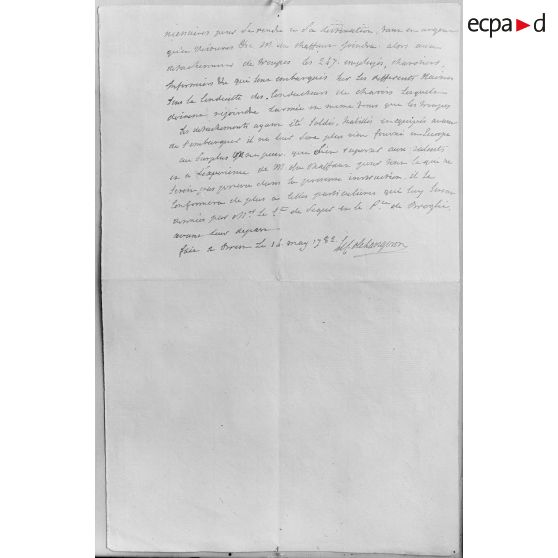 ecpa d
necessaires pour se rendre a sa destination, dans un
qu'en Mr. du Chaffaur joindra alors aux
detachemens de troupes les 247. employés, charetiers,
Infirmiers &a qui sont embarqués sur les differents Navires
sous la Conduite des Conducteurs de charois lesquels
doivent rejoindre l'armée en meme tems que les troupes
Les detachements ayant été Soldés, habillés en equipés avant
de s'embarquer il ne leur sera plus rien fourni en Europe
au surplus on ne peut que s'en raporter aux talents
et a l'experience de M. du Chaffaur pour tout ce qui ne
seroit pas prevu dans la presente instruction, il se
conformera de plus a telles particulieres qui luy seront
données par Mr. le Cte. de Segur et le Pce. de Broglie
avant leur depart.
fait a Brest le 14 may 1782